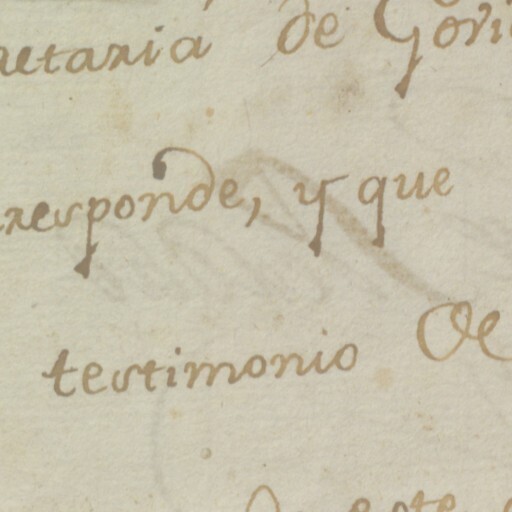 etaria de Gori
responde, y que
testimonio de
este